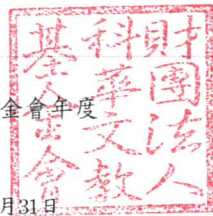 財團法人
科華文教
基金會
金會年度
月31日